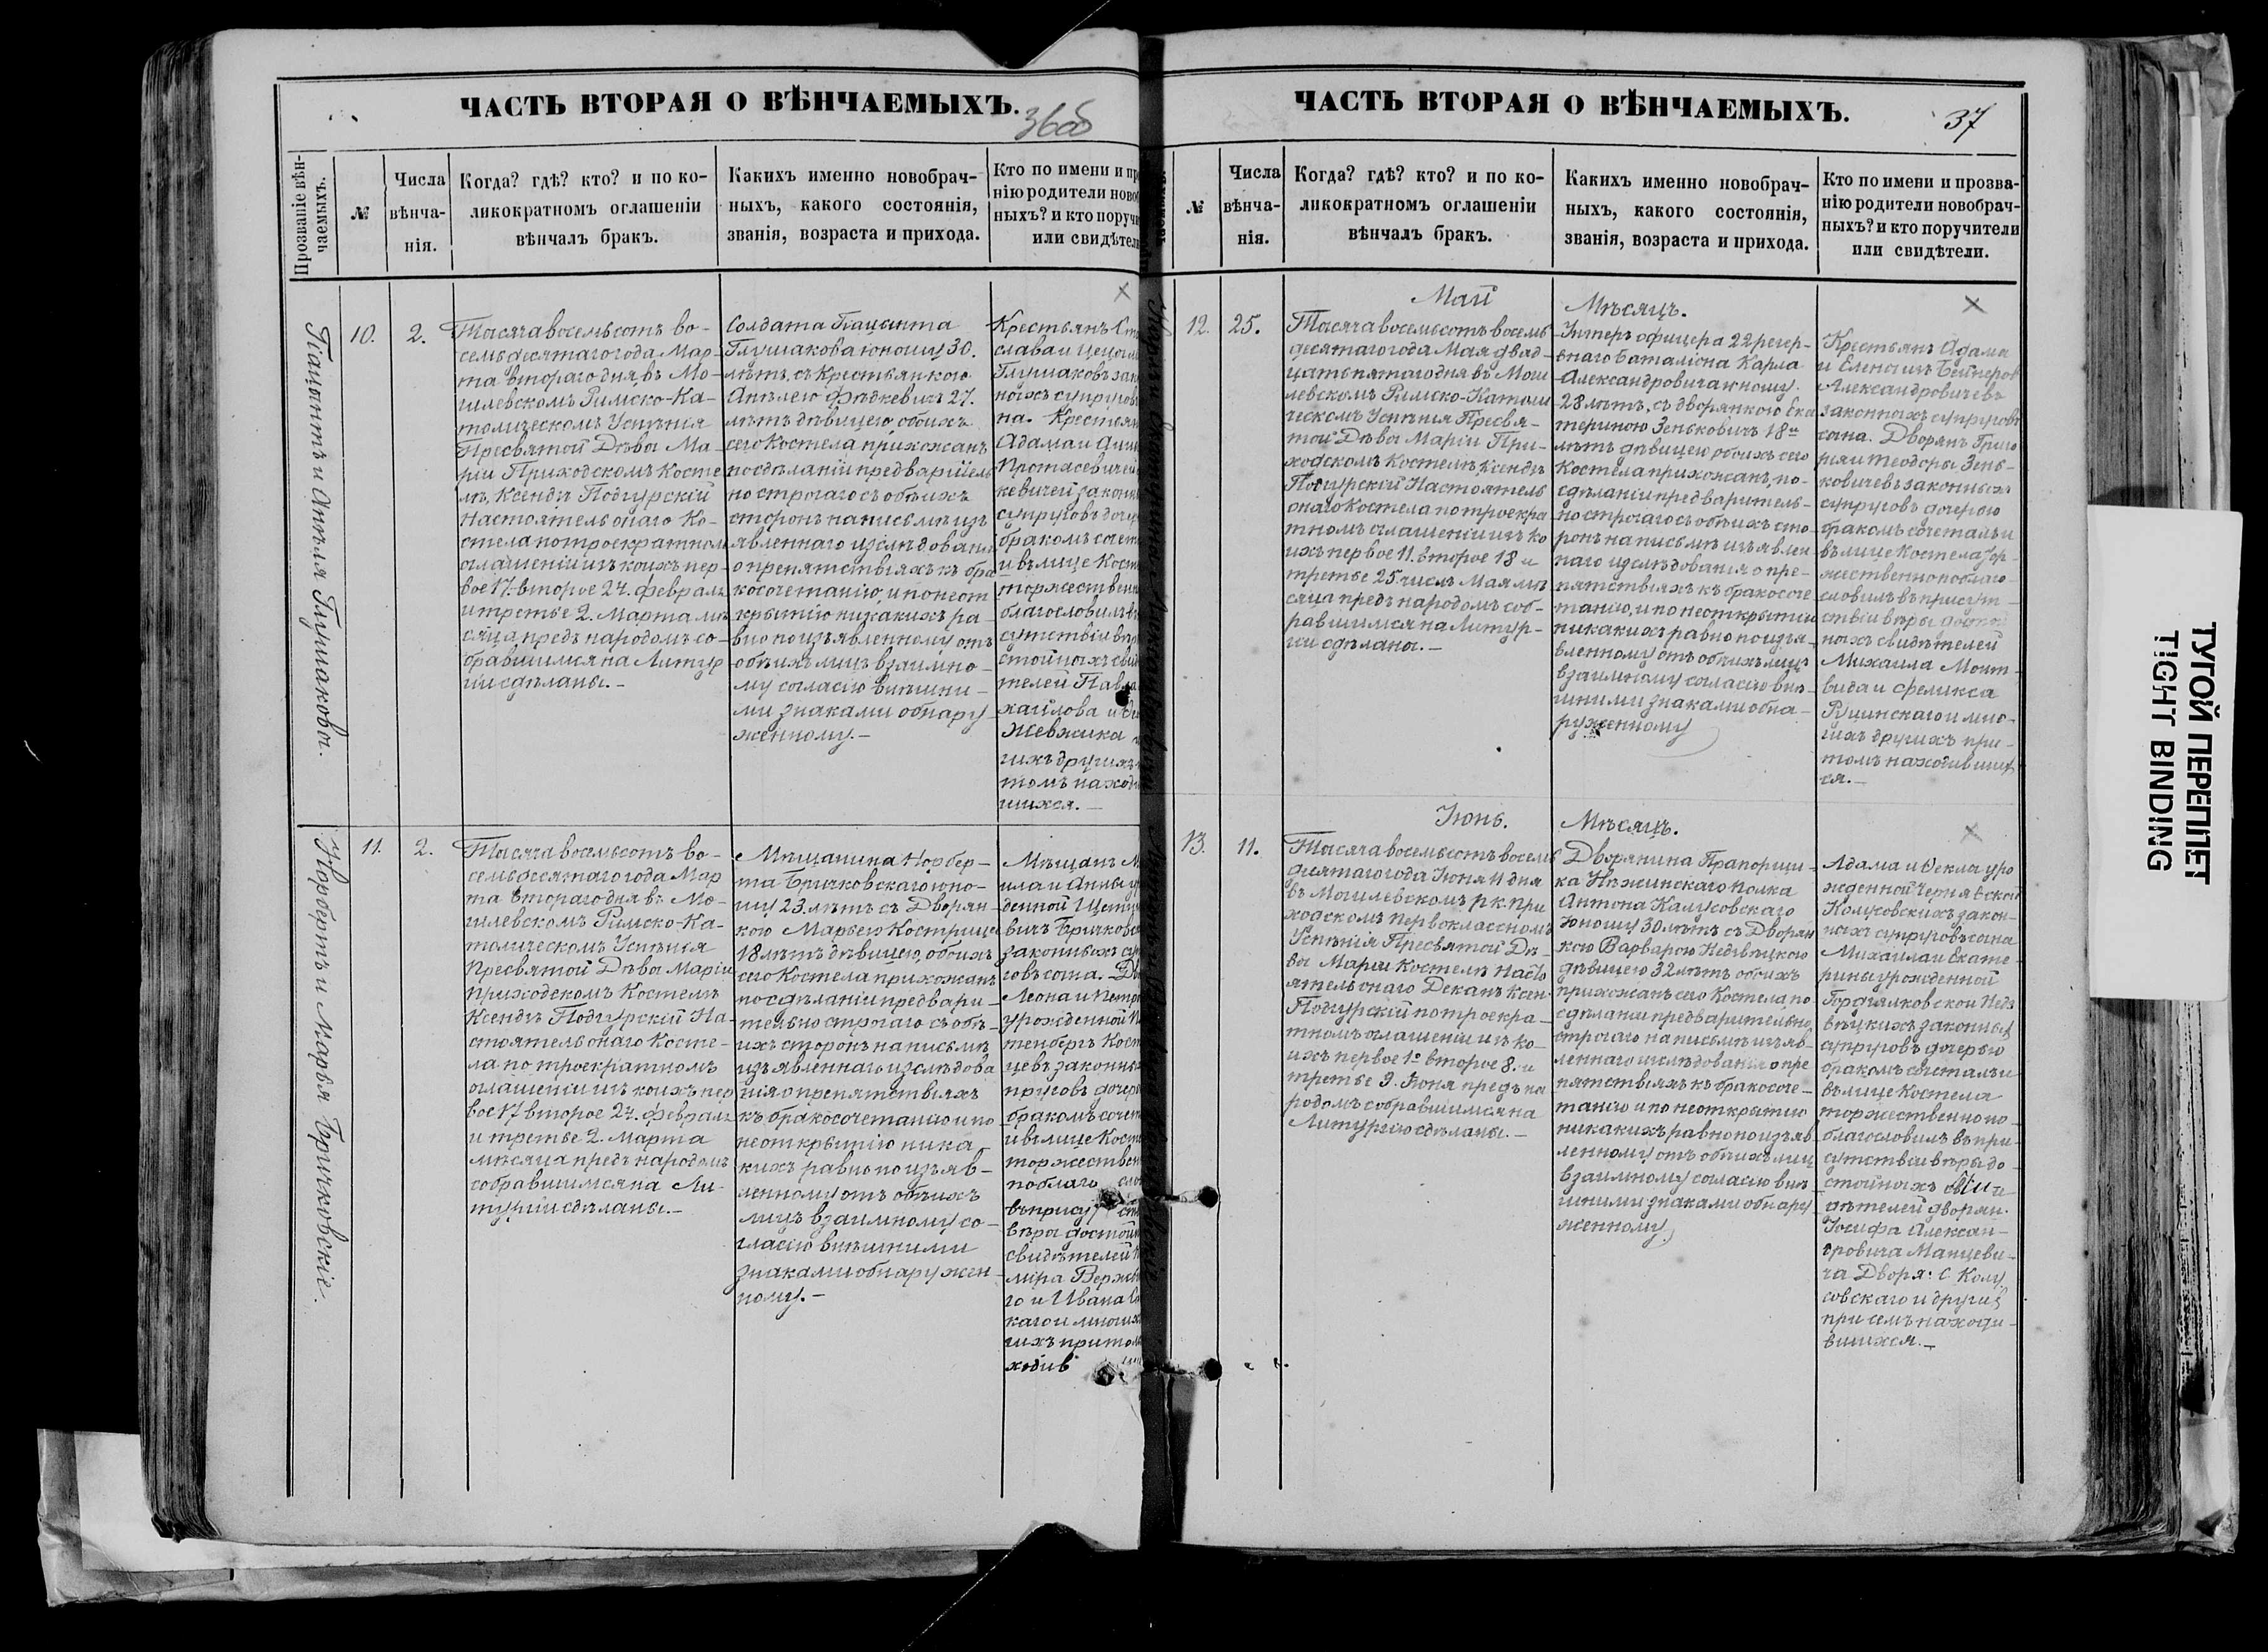 ЧАСТЬ ВТОРАЯ О ВѢНЧАЕМЫХЪ.
36об
Прозваніе вѣн-
чаемыхъ.
№
Числа
вѣнча-
нія.
Когда? гдѣ? кто? и по ко-
ликократномъ оглашеніи
вѣнчалъ бракъ.
Какихъ именно новобрач-
ныхъ, какого состоянія,
званія, возраста и прихода.
Кто по имени и пр
нію родители ново
ныхъ? и кто поручи
или свидѣтел
Гіацынтъ и Анѣля Глушаковы.
10.
2.
Тысяча восемьсотъ во-
семьдесятаго года Мар-
та втораго дня, въ Мо-
гилевскомъ Римско-Ка-
толическомъ Успенія
Пресвятой Дѣвы Ма-
ріи Приходскомъ Косте-
лѣ, Ксендзъ Подгурскій
Настоятель онаго Ко-
стела по троекратномъ
оглашеніи изъ коихъ пер-
вое 17. второе 24. февраля
и третье 2. Марта мѣ-
сяца предъ народомъ со-
бравшимся на Литур-
гіи сдѣланы.-
Солдата Гіацынта
Глушакова юношу 30.
лѣтъ, съ Крестьянкою
Анѣлею Фѣдкевичъ 27.
лѣтъ дѣвицею, обоихъ
сего Костела прихожанъ
посдѣланіи предваритель
но строгаго съ обѣихъ
сторонъ на письмѣ изъ
явленнаго изслѣдованія
о препятствіяхъ къ бра
косочетанію, и по неот
крытію никакихъ ра-
вно по изъявленному отъ
обѣихъ лицъ взаимно-
му согласію внѣшни-
ми знаками обнару-
женному.-
Крестьянъ
слава и Цецил
Глушаковъ зак
ныхъ супругов
на. Крестьян
Адама и Анн
Протасевичей
кевичей законн
супруговъ доч
бракомъ сочет
и въ лице Кост
торжествен
благословилъ в
сутствіи вѣр
стойныхъ свид
телей Павла
хайлова и
Жевжика
гихъ другихъ
томъ наход
шихся.-
Норбертъ и Марья Бричковскіе.
11.
2.
Тысяча восемьсотъ во-
семьдесятаго года Мар
та втораго дня въ Мо-
гилевскомъ Римско-Ка-
толическомъ Успенія
Пресвятой Дѣвы Маріи
Приходскомъ Костелѣ
Ксендзъ Подгурскій На-
стоятель онаго Косте-
ла по троекратномъ
оглашеніи изъ коихъ пер
вое 17 второе 24. февраля
и третье 2. Марта
мѣсяца предъ народомъ
собравшимся на Ли-
тургіи сдѣланы.-
Мѣщанина Норбер-
та Бричковскаго юно-
шу 23. лѣтъ съ Дворян-
кою Марьею Кострица
18 лѣтъ дѣвицею, обоихъ
сего Костела прихожанъ
по сдѣланіи предвари-
тельно строгаго съ обѣ-
ихъ сторонъ на письмѣ
изъявленнаго изслѣдова
нія о препятствіяхъ
къ бракосочетанію и по
неоткрытію ника-
кихъ равно по изъяв-
ленному отъ обѣихъ
лицъ взаимному со-
гласію внѣшними
знаками обнаружен-
ному.-
Мѣщанъ М
ила и Анны у
денной Щепу
вичъ Бричковс
законныхъ су
говъ сына. Дв
Леона и Петр
урожденной
тенбергъ Кост
цевъ законны
пруговъ дочер
бракомъ сочет
и въ лице Кост
торжествен
поблаго сло
въ прису ст
вѣры достойн
свидѣтелей
міра Верж
го и Ивана
каго и многих
гихъ притом
ходив
ЧАСТЬ ВТОРАЯ О ВѢНЧАЕМЫХЪ.
37
№
Числа
вѣнча-
нія.
Когда? гдѣ? кто? и по ко-
ликократномъ оглашеніи
вѣнчалъ бракъ.
Какихъ именно новобрач-
ныхъ, какого состоянія,
званія, возраста и прихода.
Кто по имени и прозва-
нію родители новобрач-
ныхъ? и кто поручители
или свидѣтели.
Май
Мѣсяцъ.
12.
25.
Тысяча восемьсотъ восемь
десятаго года Мая двад-
цать пятаго дня въ Моги
левскомъ Римско-Католи
ческомъ Успенія Пресвя-
той Дѣвы Маріи При-
ходскомъ Костелѣ Ксендзъ
Подгурскій Настоятель
онаго Костела по троекра
тномъ оглашеніи изъ ко
ихъ первое 11. второе 18 и
третье 25. числъ Мая мѣ
сяца предъ народомъ соб-
равшимся на Литур-
гіи сдѣланы.-
Унтеръ офицера 22 резер-
внаго баталіона Карла
Александровича юношу
28 лѣтъ, съ дворянкою Ека
териною Зенковичъ 18и
лѣтъ дѣвицею обоихъ сего
Костела прихожанъ, по-
сдѣланіи предваритель-
но строгаго съ обѣихъ сто
ронъ на письмѣ изъявлен
наго изслѣдованія о пре-
пятствіяхъ къ бракосоче
танію, и по неоткрытію
никакихъ равно по изъя-
вленному отъ обѣихъ лицъ
взаимному согласію внѣ-
шними знаками обна-
руженному
Крестьянъ Адама
и Елены изъ Бейнеров
Александровичевъ
законныхъ супруговъ
сына. Дворянъ Григо
рія и Теодоры Зень-
ковичевъ законныхъ
супруговъ дочерью
бракомъ сочеталъ и
въ лице Костела тор
жественно поблаго-
словилъ въ присут-
ствіи вѣры достой
ныхъ свидѣтелей
Михаила Монт-
вида и Феликса
Рущинскаго и мно-
гихъ другихъ при-
томъ находивших
ся.-
Іюнь.
Мѣсяцъ.
13.
11.
Тысяча восемьсотъ восемь
десятаго года Іюня 11 дня
въ Могилевскомъ р.к. при
ходскомъ первоклассномъ
Успенія Пресвятой Дѣ-
вы Маріи Костелѣ Насто
ятель онаго Деканъ Ксен.
Подгурскій по троекра-
тномъ оглашеніи изъ ко-
ихъ первое 1о второе 8. и
третье 9. Іюня предъ на
родомъ собравшимся на
Литургію сдѣланы.-
Дворянина Прапорщи-
ка Нѣжинскаго полка
Антона Калусовскаго
юношу 30 лѣтъ съ Дворян
кою Варварою Недзвѣцкою
дѣвицею 32 лѣтъ обоихъ
прихожанъ сего Костела, по
сдѣланіи предварительно
строгаго на письмѣ изъяв-
леннаго изслѣдованія о пре
пятствіяхъ къ бракосоче-
танію и по неоткрытію
никакихъ равно по изъяв
ленному отъ обѣихъ лиц
взаимному согласію внѣ
шними знаками обнару
женному.
Адама и Ѳекла уро
жденной Чернявской
Колусовскихъ закон-
ныхъ супруговъ сына
Михаила и Екате-
рины урожденной
Гордзялковской Недз
вѣцкихъ законных
супруговъ дочерью
бракомъ сочеталъ и
въ лице Костела
торжественно по-
благословилъ въ при-
сутствіи вѣры до-
стойныхъ свіи
дѣтелей дворян.
Іосифа Алексан-
дровича Манцеви-
ча Дворя: С Колу
совскаго и других
при семъ находи-
вшихся.-
ТУГОЙ ПЕРЕПЛЕТ
TIGHT BINDING